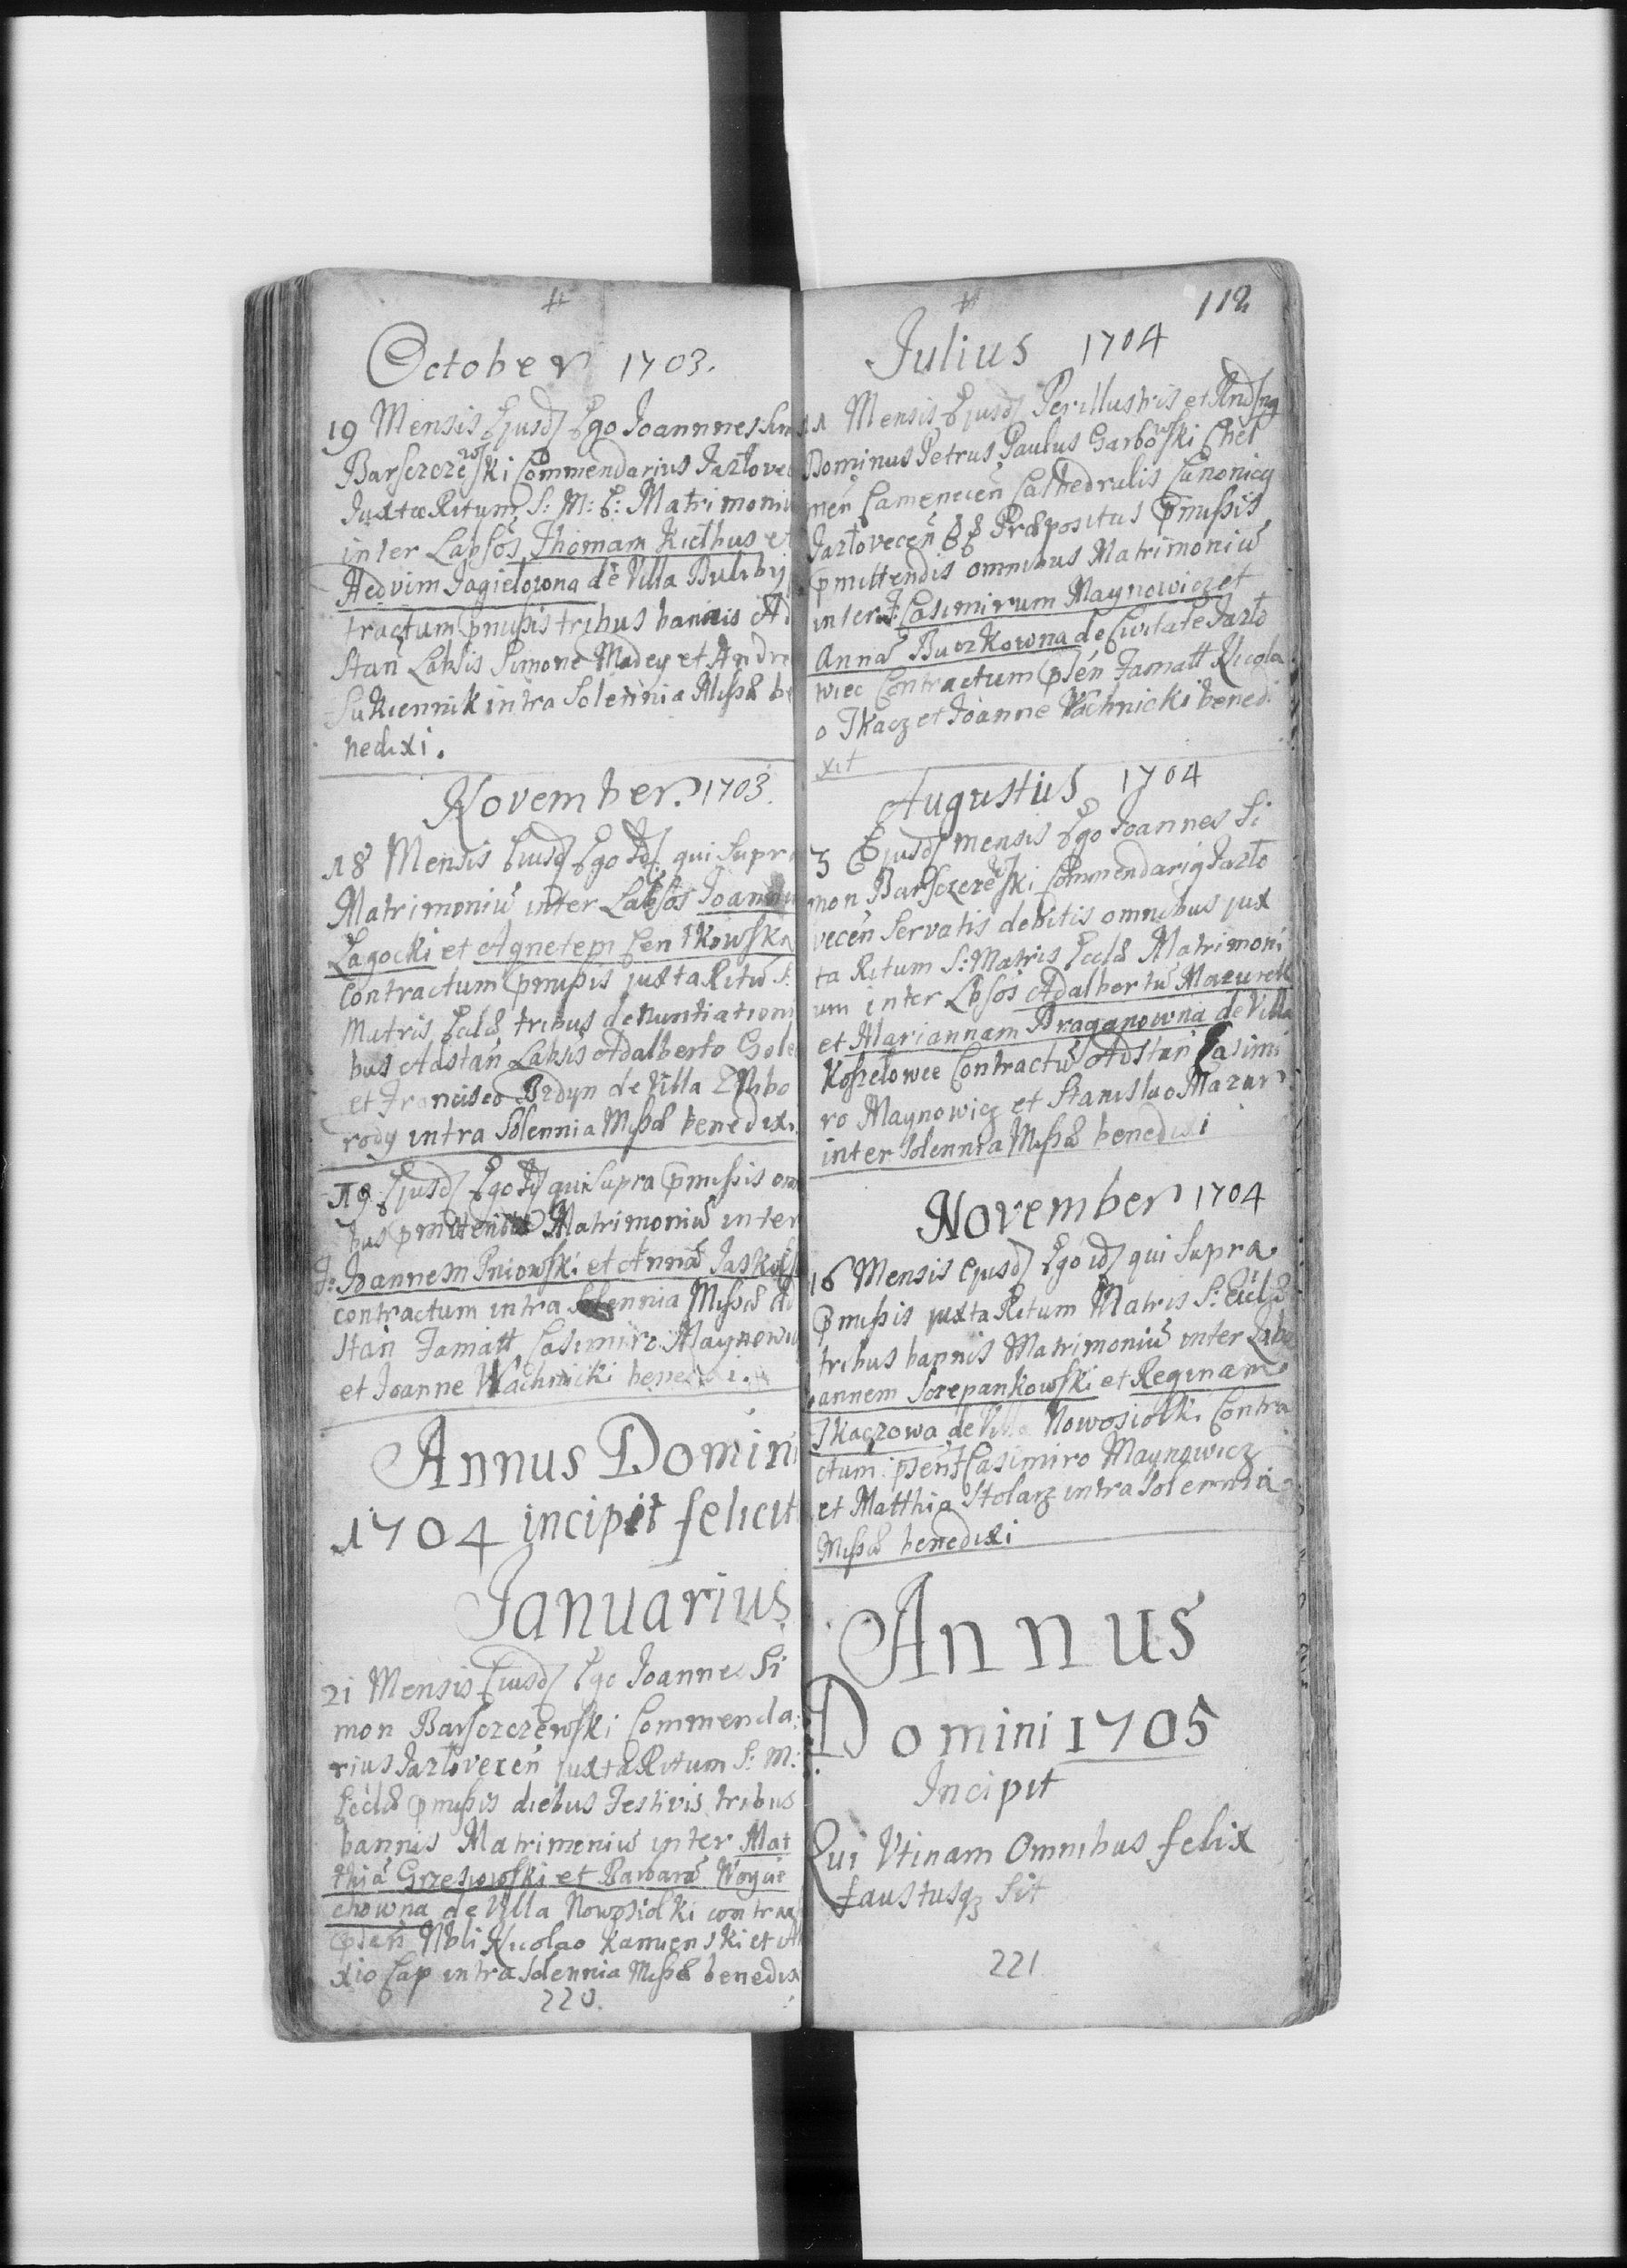 October 1703.
19 Mensis Ejusd Ego Joannnes Sim
Barsczczewski Commendarius Jazlovec
Juxta Ritum S: M: E: Matrimoniu
inter Labsos Thomam Kielbus et
Hedvim Jagielowna de Villa
tractum pmissis tribus bannis Ad
stan Labsis Simone Madey et Andre
Sukiennik intra Solennia Missæ be
nedixi.
November 1703.
18 Mensis Eiusd Ego Id qui Supra
Matrimoniu inter Labsos Joannem
Lagocki et Agnetem
Contractum pmissis juxta Ritu S:
Matris Eccl tribus denuntiationi
bus Adstan Labsis Adalberto
et Francisco de Villa
rody intra Solennia Missæ benedixi
19 Ejusd Ego Id qui Supra pmissis om
bus pmittendis Matrimoniu inter
F: Joannem Pniowski et Anna
contractum intra Solennia Missæ Ad
stan Famatt Casimiro Maynowicz
et Joanne Wachnicki benedixi.
Annus Domini
1704 incipit felicit
Januarius
21 Mensis Eiusd Ego Joannes Si
mon Barsczczewski Commenda
rius Jazlovecen juxta Ritum S: M:
Eccl pmissis diebus Festivis tribus
bannis Matrimoniu inter Mat
thia Grzesowski et Barbara Woycie
chowna de Villa Nowosiolki contrac
psen Nbli Nicolao Kamienski et
xio Cap intra Solennia Missæ benedix
220.
112
Julius 1704
11 Mensis Ejusd Perillustris et Rndsng
Dominus Petrus Paulus Garbowski Chel
men Camenecen Cathedralis Canonicg
Jazlovecen Præpositus pmissis
pmittendis omnibus Matrimoniu
inter F: Casimirum Maynowicz et
Anna Buczkowna de Civitate Jazlo
wiec Contractum psen Famatt Nicola
o Tkacz et Joanne Wachnicki bened
xit
Augustus 1704
3 Ejusd mensis Ego Joannes Si
mon Barsczczewski Commendarig Jazlo
vecen Servatis debitis omnibus jux
ta Ritum S: Matris Eccl Matrimoni
um inter Lbsos Adalbertu Mazurek
et Mariannam Draganowna de Villa
Koszelowce Contractu Adstan Casimi
ro Maynowicz et Stanislao Mazur
inter Solennia Missæ benedixi
November 1704
16 Mensis Ejusd Ego id qui Supra
pmissis juxta Ritum Matris S: Eccl
tribus bannis Matrimoniu inter
annem Sczepankowski et Reginam
Tkaczowa de Villa Nowosiolki Contra
ctum psen F Casimiro Maynowicz
et Matthia Stolarz intra Solennia
Missæ benedixi
Annus
Domini 1705
Incipit
Qui Utinam Omnibus felix
faustusq sit
221